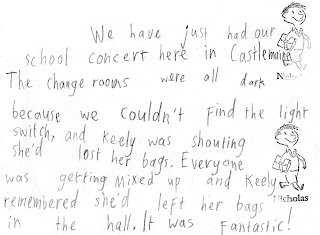 We have just had our
school concert here in Castlemaine
The change rooms were all dark
because we couldn't find the light
switch, and Keely was shouting
she'd lost her bags. Everyone
was getting Mixed up and Keely
remembered she'd left her bags
Nicholas
in the hall. It was Fantastic!